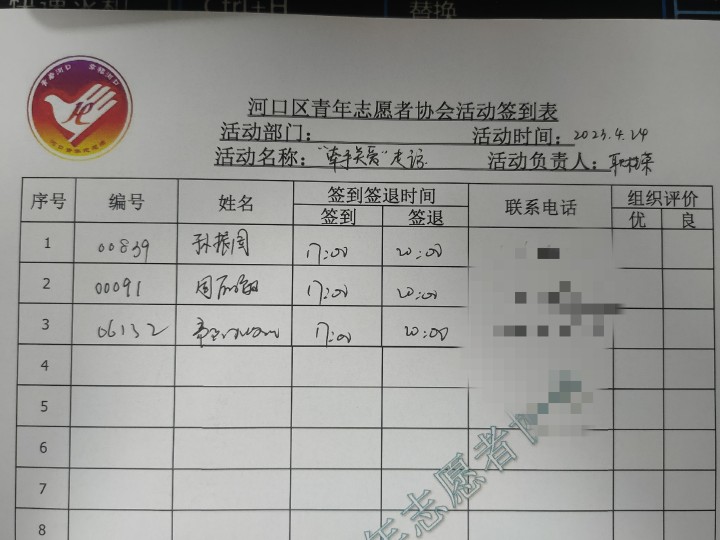 Ctrl+H
替换
青春河口 幸福河口
河口区青年志愿者协会活动签到表
活动部门：
活动时间：2023.4.24
活动名称："牵手关爱"走访
活动负责人：
序号 编号 姓名 签到签退时间 联系电话 组织评价
签到 签退 优 良
1 00839 孙振国 17:00 20:00
2 00091 17:00 20:00
3 06132 17:00 20:00
4
5
6
7
8
年志愿者协